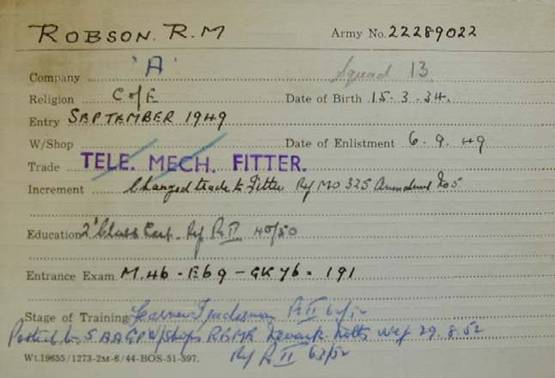 ROBSON. R.M Army No. 22289022
Company 'A' Squad 13
Religion C of E Date of Birth 15.3.34.
Entry SEPTEMBER 1949
W/Shop Date of Enlistment 6.9.49
Trade TELE. MECH. FITTER.
Increment Changed trade to Fitter Ref MO 325 Amendment No 5
Education 2nd Class Cert. Ref Pt II 40/50
Entrance Exam M.46 - E69 - GK76 - 191
Stage of Training Learner Tradesman Pt II 62/52
Posted to 5 W/Shops REME Newark Notts wef 29.8.52
Wt.19655/1273-2M-6/44-BOS-51-397. Ref Pt II 63/52